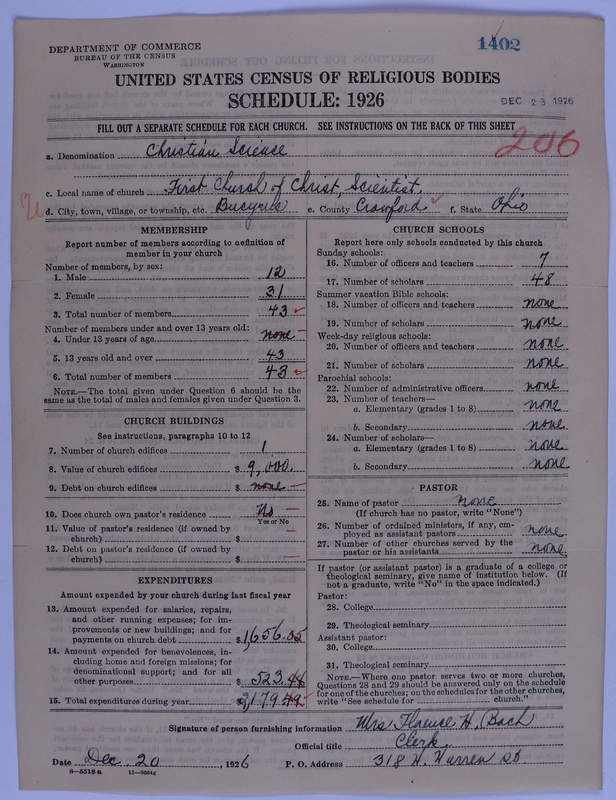 DEPARTMENT OF COMMERCE
BUREAU OF THE CENSUS
WASHINGTON
1402
UNITED STATES CENSUS OF RELIGIOUS BODIES
SCHEDULE: 1926
DEC 23 1926
FILL OUT A SEPARATE SCHEDULE FOR EACH CHURCH. SEE INSTRUCTIONS ON THE BACK OF THIS SHEET
206
a. Denomination Christian Science
c. Local name of church First Church of Christ, Scientist.
d. City, town, village, or township, etc. Bucyrus e. County Crawford f. State Ohio
MEMBERSHIP
Report number of members according to definition of
member in your church
Number of members, by sex:
1. Male 12
2. Female 31
3. Total number of members 43
Number of members under and over 13 years old:
4. Under 13 years of age none
5. 13 years old and over 43
6. Total number of members 43
NOTE.—The total given under Question 6 should be the
same as the total of males and females given under Question 3.
CHURCH BUILDINGS
See instructions, paragraphs 10 to 12
7. Number of church edifices 1
8. Value of church edifices $ 9,000.
9. Debt on church edifices $ none
10. Does church own pastor's residence No
Yes or No
11. Value of pastor's residence (if owned by
church) $
12. Debt on pastor's residence (if owned by
church) $
EXPENDITURES
Amount expended by your church during last fiscal year
13. Amount expended for salaries, repairs,
and other running expenses; for im-
provements or new buildings; and for
payments on church debt $1,656.05
14. Amount expended for benevolences, in-
cluding home and foreign missions; for
denominational support; and for all
other purposes $ 523.44
15. Total expenditures during year $2,179.49
CHURCH SCHOOLS
Report here only schools conducted by this church
Sunday schools:
16. Number of officers and teachers 7
17. Number of scholars 48
Summer vacation Bible schools:
18. Number of officers and teachers none
19. Number of scholars none
Week-day religious schools:
20. Number of officers and teachers none
21. Number of scholars none
Parochial schools:
22. Number of administrative officers none
23. Number of teachers—
a. Elementary (grades 1 to 8) none
b. Secondary none
24. Number of scholars—
a. Elementary (grades 1 to 8) none
b. Secondary none
PASTOR
25. Name of pastor none
(If church has no pastor, write "None")
26. Number of ordained ministers, if any, em-
ployed as assistant pastors none
27. Number of other churches served by the
pastor or his assistants none
If pastor (or assistant pastor) is a graduate of a college or
theological seminary, give name of institution below. (If
not a graduate, write "No" in the space indicated.)
Pastor:
28. College
29. Theological seminary
Assistant pastor:
30. College
31. Theological seminary
NOTE.—Where one pastor serves two or more churches,
Questions 28 and 29 should be answered only on the schedule
for one of the churches; on the schedules for the other churches,
write "See schedule for church."
Signature of person furnishing information Mrs Florence H. Bach
Official title Clerk
Date Dec. 20, 1926 P. O. Address 318 W. Warren St
6—5518 a 11—9034g